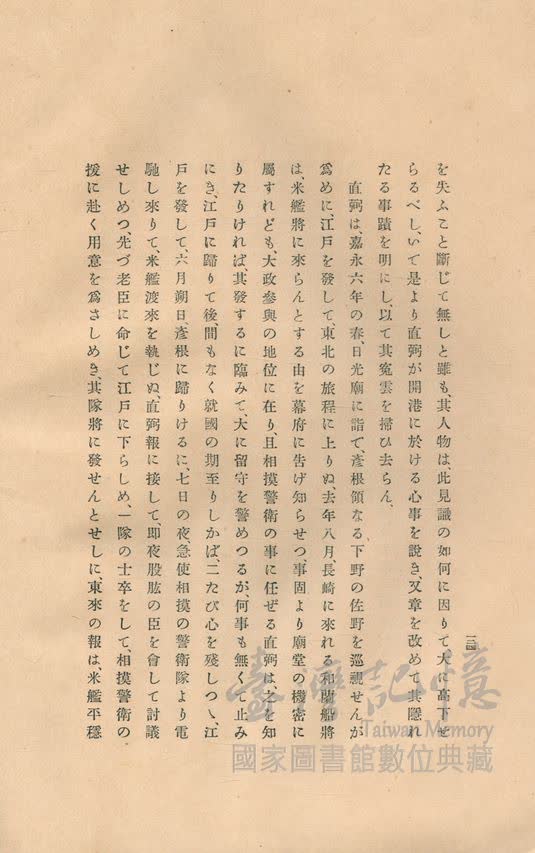 を失ふこと斷じて無しと雖も、其人物は、此見識の如何に因りて大に高下せ
らるべし、いで是より直弼が開港に於ける心事を說き、又章を改めて其隱れ
たる事蹟を明にし、以て其寃雲を掃ひ去らん、
直弼は、嘉永六年の春、日光廟に詣で、彥根領なる下野の佐野を巡視せんが
爲めに、江戶を發して東北の旅程に上りぬ、去年八月長崎に來れる和蘭船將
は、米艦將に來らんとする由を幕府に告げ知らせつ、事固より廟堂の機密に
屬すれども、大政參與の地位に在り、且相摸警衛の事に任ぜる直弼は、之を知
りたりければ、其發するに臨みて、大に留守を警めつるが、何事も無くて止み
にき、江戶に歸りて後、間もなく就國の期至りしかば、二たび心を殘しつゝ、江
戶を發して、六月朔日、彥根に歸りけるに、七日の夜、急使相摸の警衛隊より電
馳し來りて、米艦渡來を執じぬ、直弼報に接して、即夜股肱の臣を會して討議
せしめつ、先づ老臣に命じて江戶に下らしめ、一隊の士卒をして、相摸警衛の
援に赴く用意を爲さしめき、其隊將に發せんとせしに、東來の報は、米艦平穩
一四
臺灣記憶
Taiwan Memory
國家圖書館數位典藏